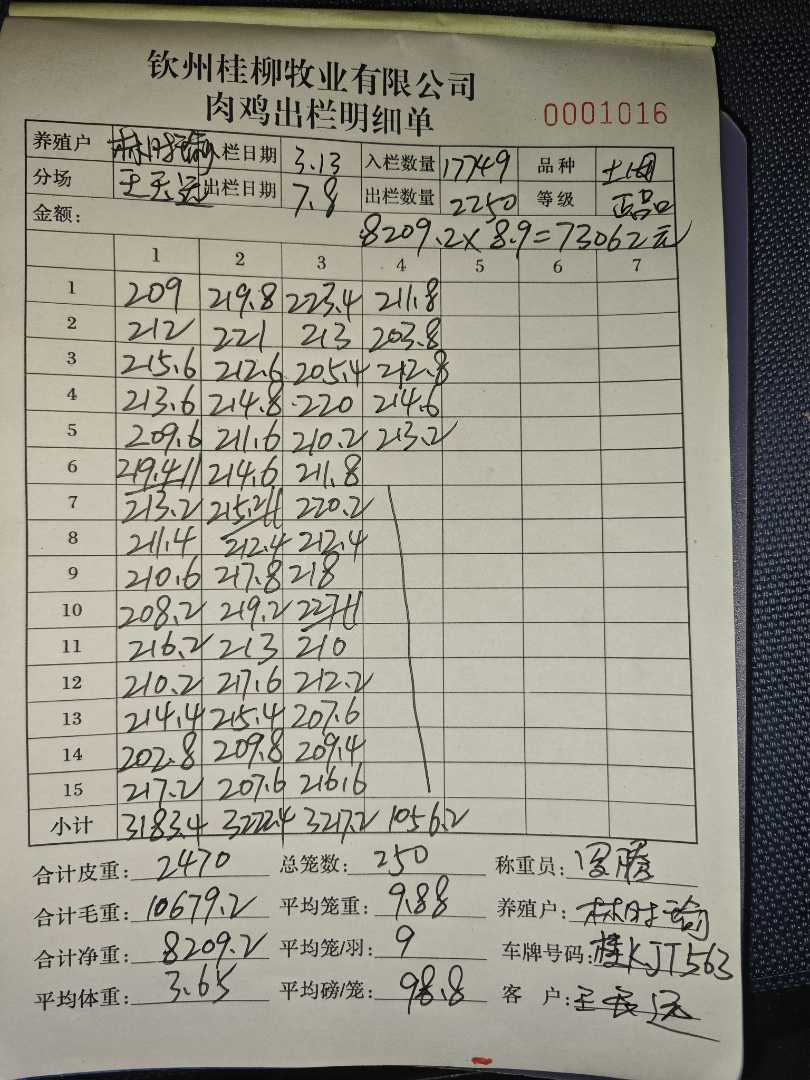 钦州桂柳牧业有限公司
肉鸡出栏明细单 0001016
养殖户 林时 入栏日期 3.13 入栏数量 17749 品种 土
分场 王天远 出栏日期 7.8 出栏数量 2250 等级 正品
金额: 8209.2×8.9=73062元
1 2 3 4 5 6 7
1 209 219.8 223.4 211.8
2 212 221 213 203.8
3 215.6 212.6 205.4 212.8
4 213.6 214.8 220 214.6
5 209.6 211.6 210.2 213.2
6 219.4 11 214.6 211.8
7 213.2 215.2 11 220.2
8 211.4 212.4 212.4
9 210.6 217.8 218
10 208.2 219.2 227 11
11 216.2 213 210
12 210.2 217.6 212.2
13 214.4 215.4 207.6
14 202.8 209.8 209.4
15 217.2 207.6 216.6
小计 3183.4 3222.4 3217.2 1056.2
合计皮重: 2470 总笼数: 250 称重员:
合计毛重: 10679.2 平均笼重: 9.88 养殖户: 林时
合计净重: 8209.2 平均笼/羽: 9 车牌号码: 桂KJT563
平均体重: 3.65 平均磅/笼: 98.8 客 户: 王天远